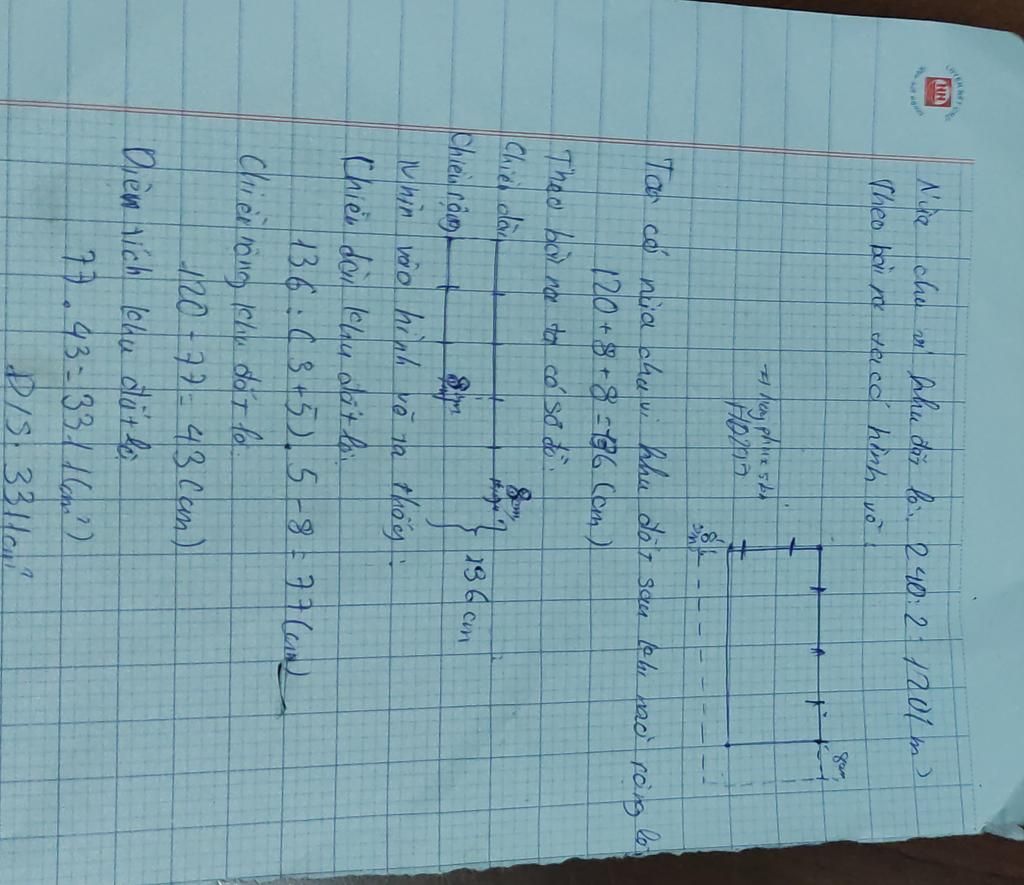 Nửa chu vi khu đất là: 240:2=120(m)
Theo bài ra ta có hình vẽ:
8cm
8cm
Ta có nửa chu vi khu đất sau khi mở rộng là
120+8+8=136(cm)
Theo bài ra ta có sơ đồ:
Chiều dài
8cm
Chiều rộng
8cm
136cm
Nhìn vào hình vẽ ta thấy:
Chiều dài khu đất là
136:(3+5).5-8=77(cm)
Chiều rộng khu đất là
120-77=43(cm)
Diện tích khu đất là
77.43=3311(cm²)
Đ/S:3311cm²